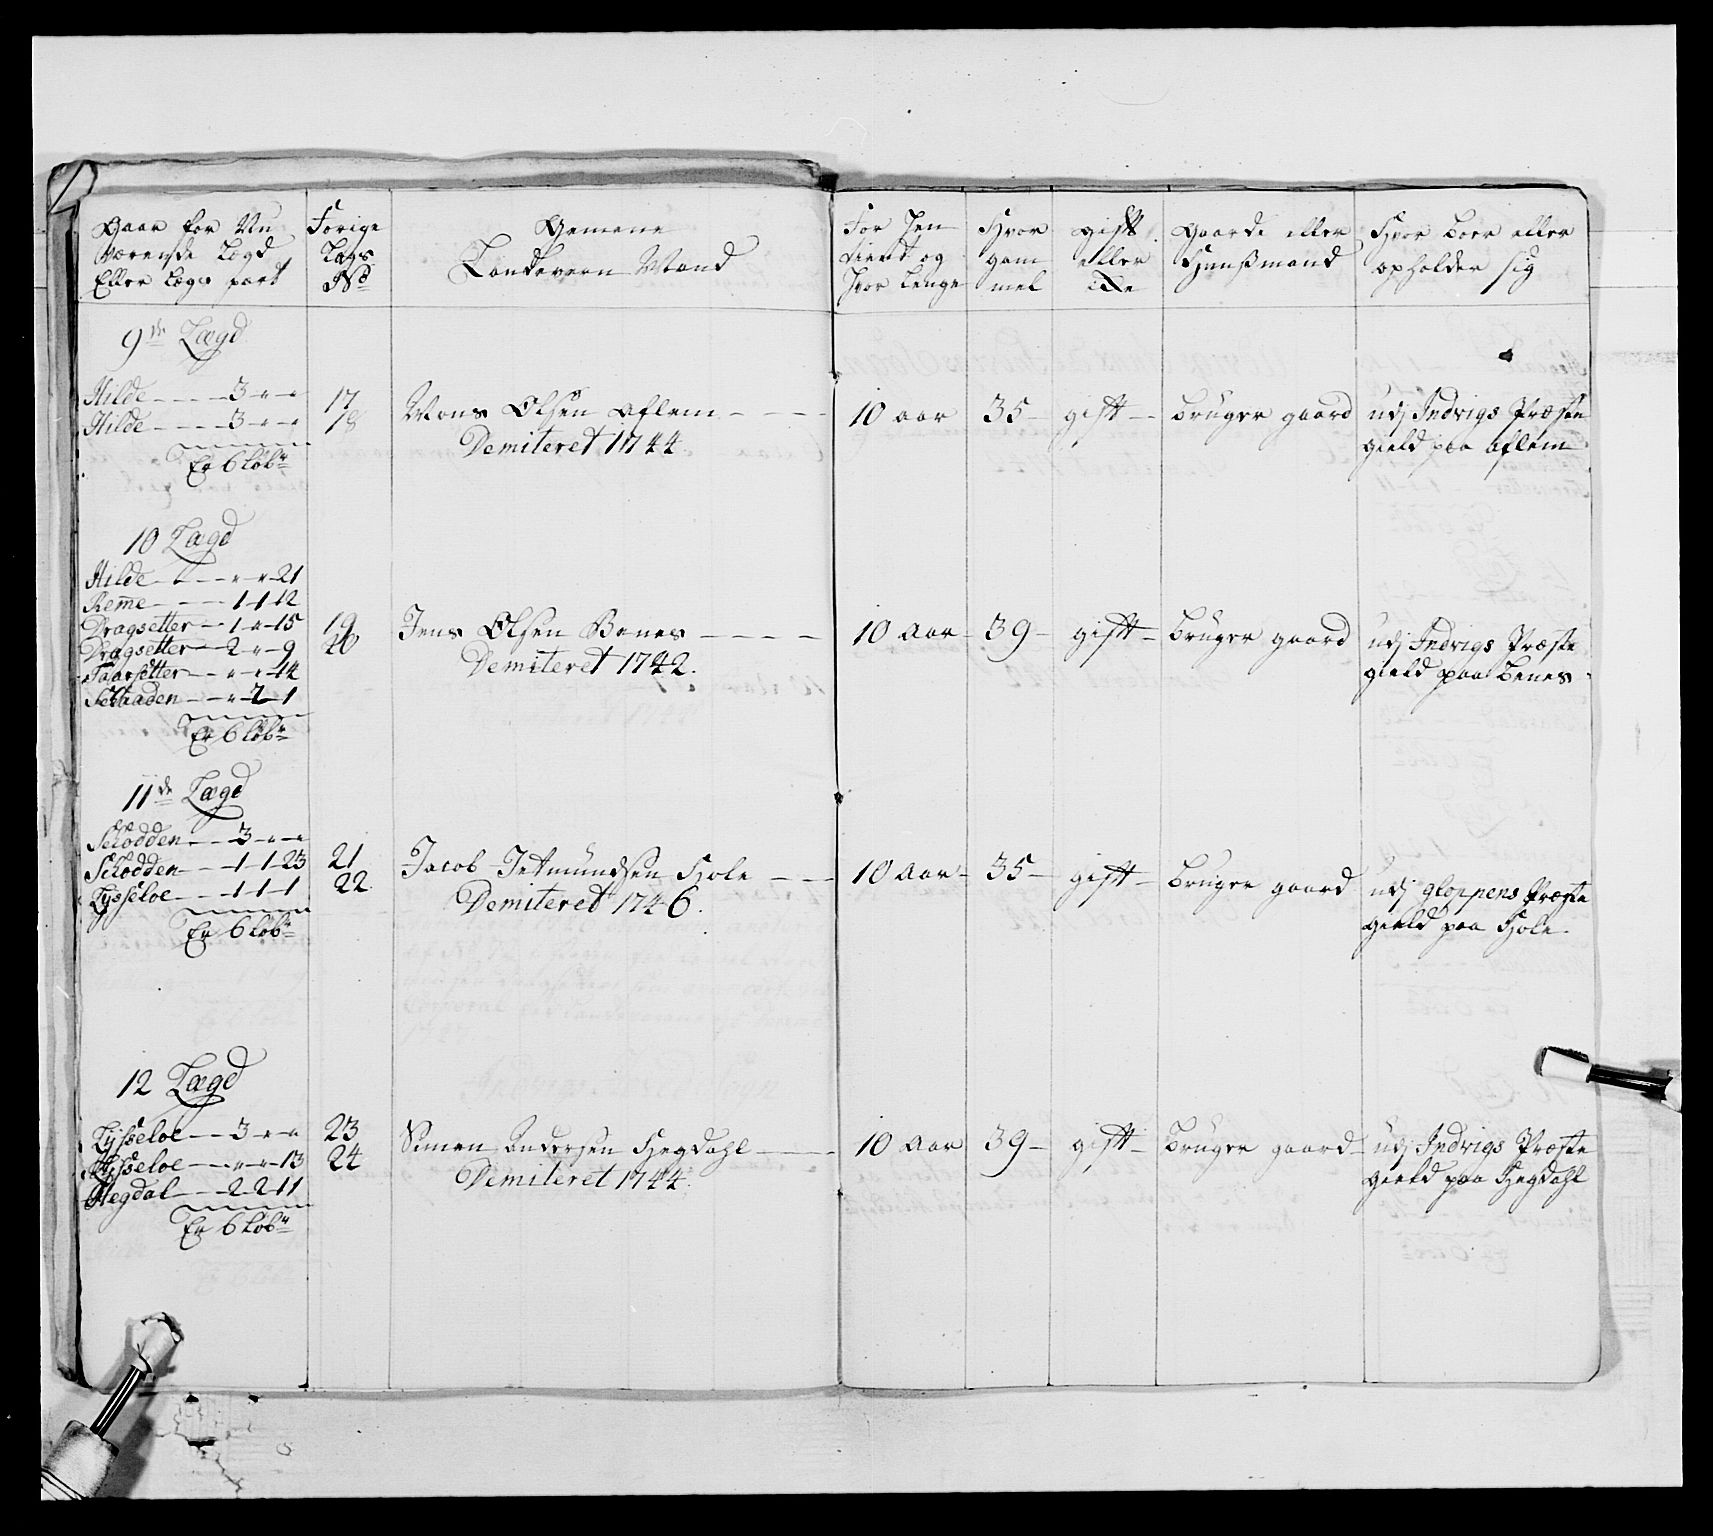 Gaar for Nu
værende Legd
Eller Legs part
Forige
Legs
No
Gemene
Landevern Mand
For Hen
tient og
Hvor Lenge
Hvor
gam
mel
gift
eller
Ei
Gaarde eller
Huusmand
Hvor boer eller
opholder sig
9de Lægd
Hilde - - - - 3 - " - "
Hilde - - - - 3 - " - "
Er 6 løb
17
18
Mons Olsen Aflem - - - -
Demiteret 1744
10 aar
35 -
gift -
bruger gaard
udj Indvigs Præste
gield paa Aflem
10 Lægd
Hilde - - - " - " - 21
Reme - - - 1 - 1 - 12
Dragsetter - - 1 - " - 15
Dragsetter - 2 - " - 9
Taarsetter - - " - " - 14
Schaaden - - " - 2 - 1
Er 6 løb
19
20
Jens Olsen Benes - - - -
Demiteret 1742.
10 Aar -
39 -
gift -
bruger gaard
udj Indvigs Præste
gield paa Benes
11de Lægd
Schodden - - 3 - " - "
Schodden - - 1 - 1 - 23
Tysseloe - - 1 - 1 - 1
Er 6 løb
21
22
Jacob Jetmundsen Hole - - -
Demiteret 1746.
10 Aar -
35 -
gift -
bruger gaard
udj Gloppens Præste
gield paa Hole.
12 Lægd
Tysseloe - - 3 - " - "
Tysseloe - - " - " - 13
Hegdal - - 2 - 2 - 11
Er 6 løb
23
24
Simen Andersen Hegdahl - - -
Demiteret 1744.
10 Aar
39 -
gift -
bruger gaard -
udj Indvigs Præste
gield paa Hegdahl